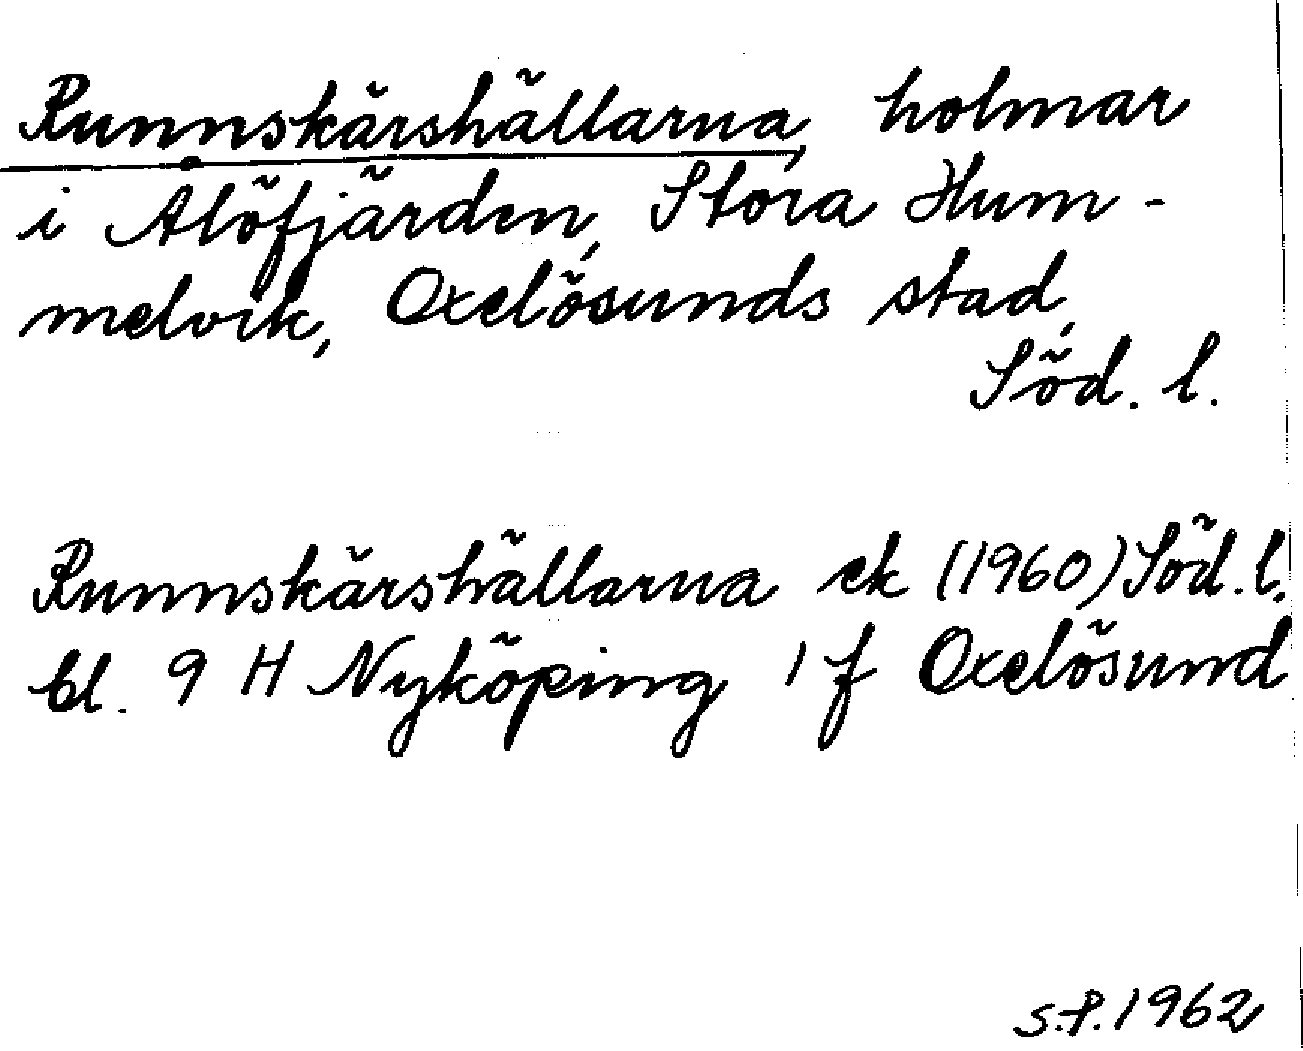 Runnskärshällarna, holmar
i Ålöfjärden, Stora Hum-
melvik, Oxelösunds stad,
Söd. l.
Runnskärshällarna ek (1960) Söd. l.
bl. 9 H Nyköping 1 f Oxelösund
S.P. 1962